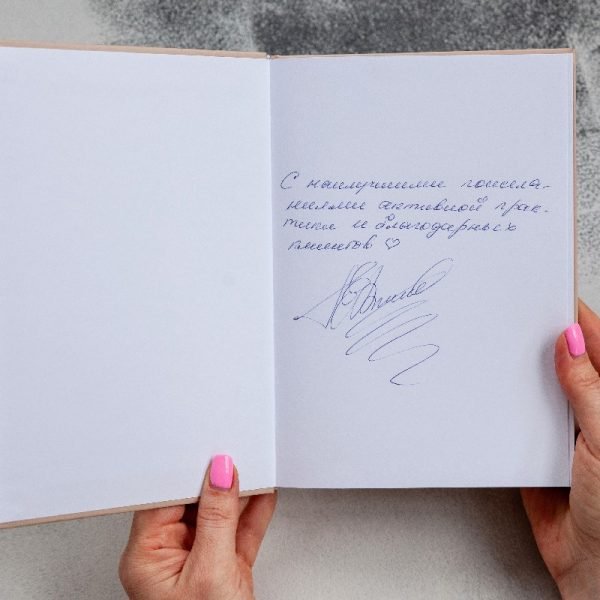 С наилучшими пожела-
ниями активной прак-
тики и благодарных
клиентов ♡